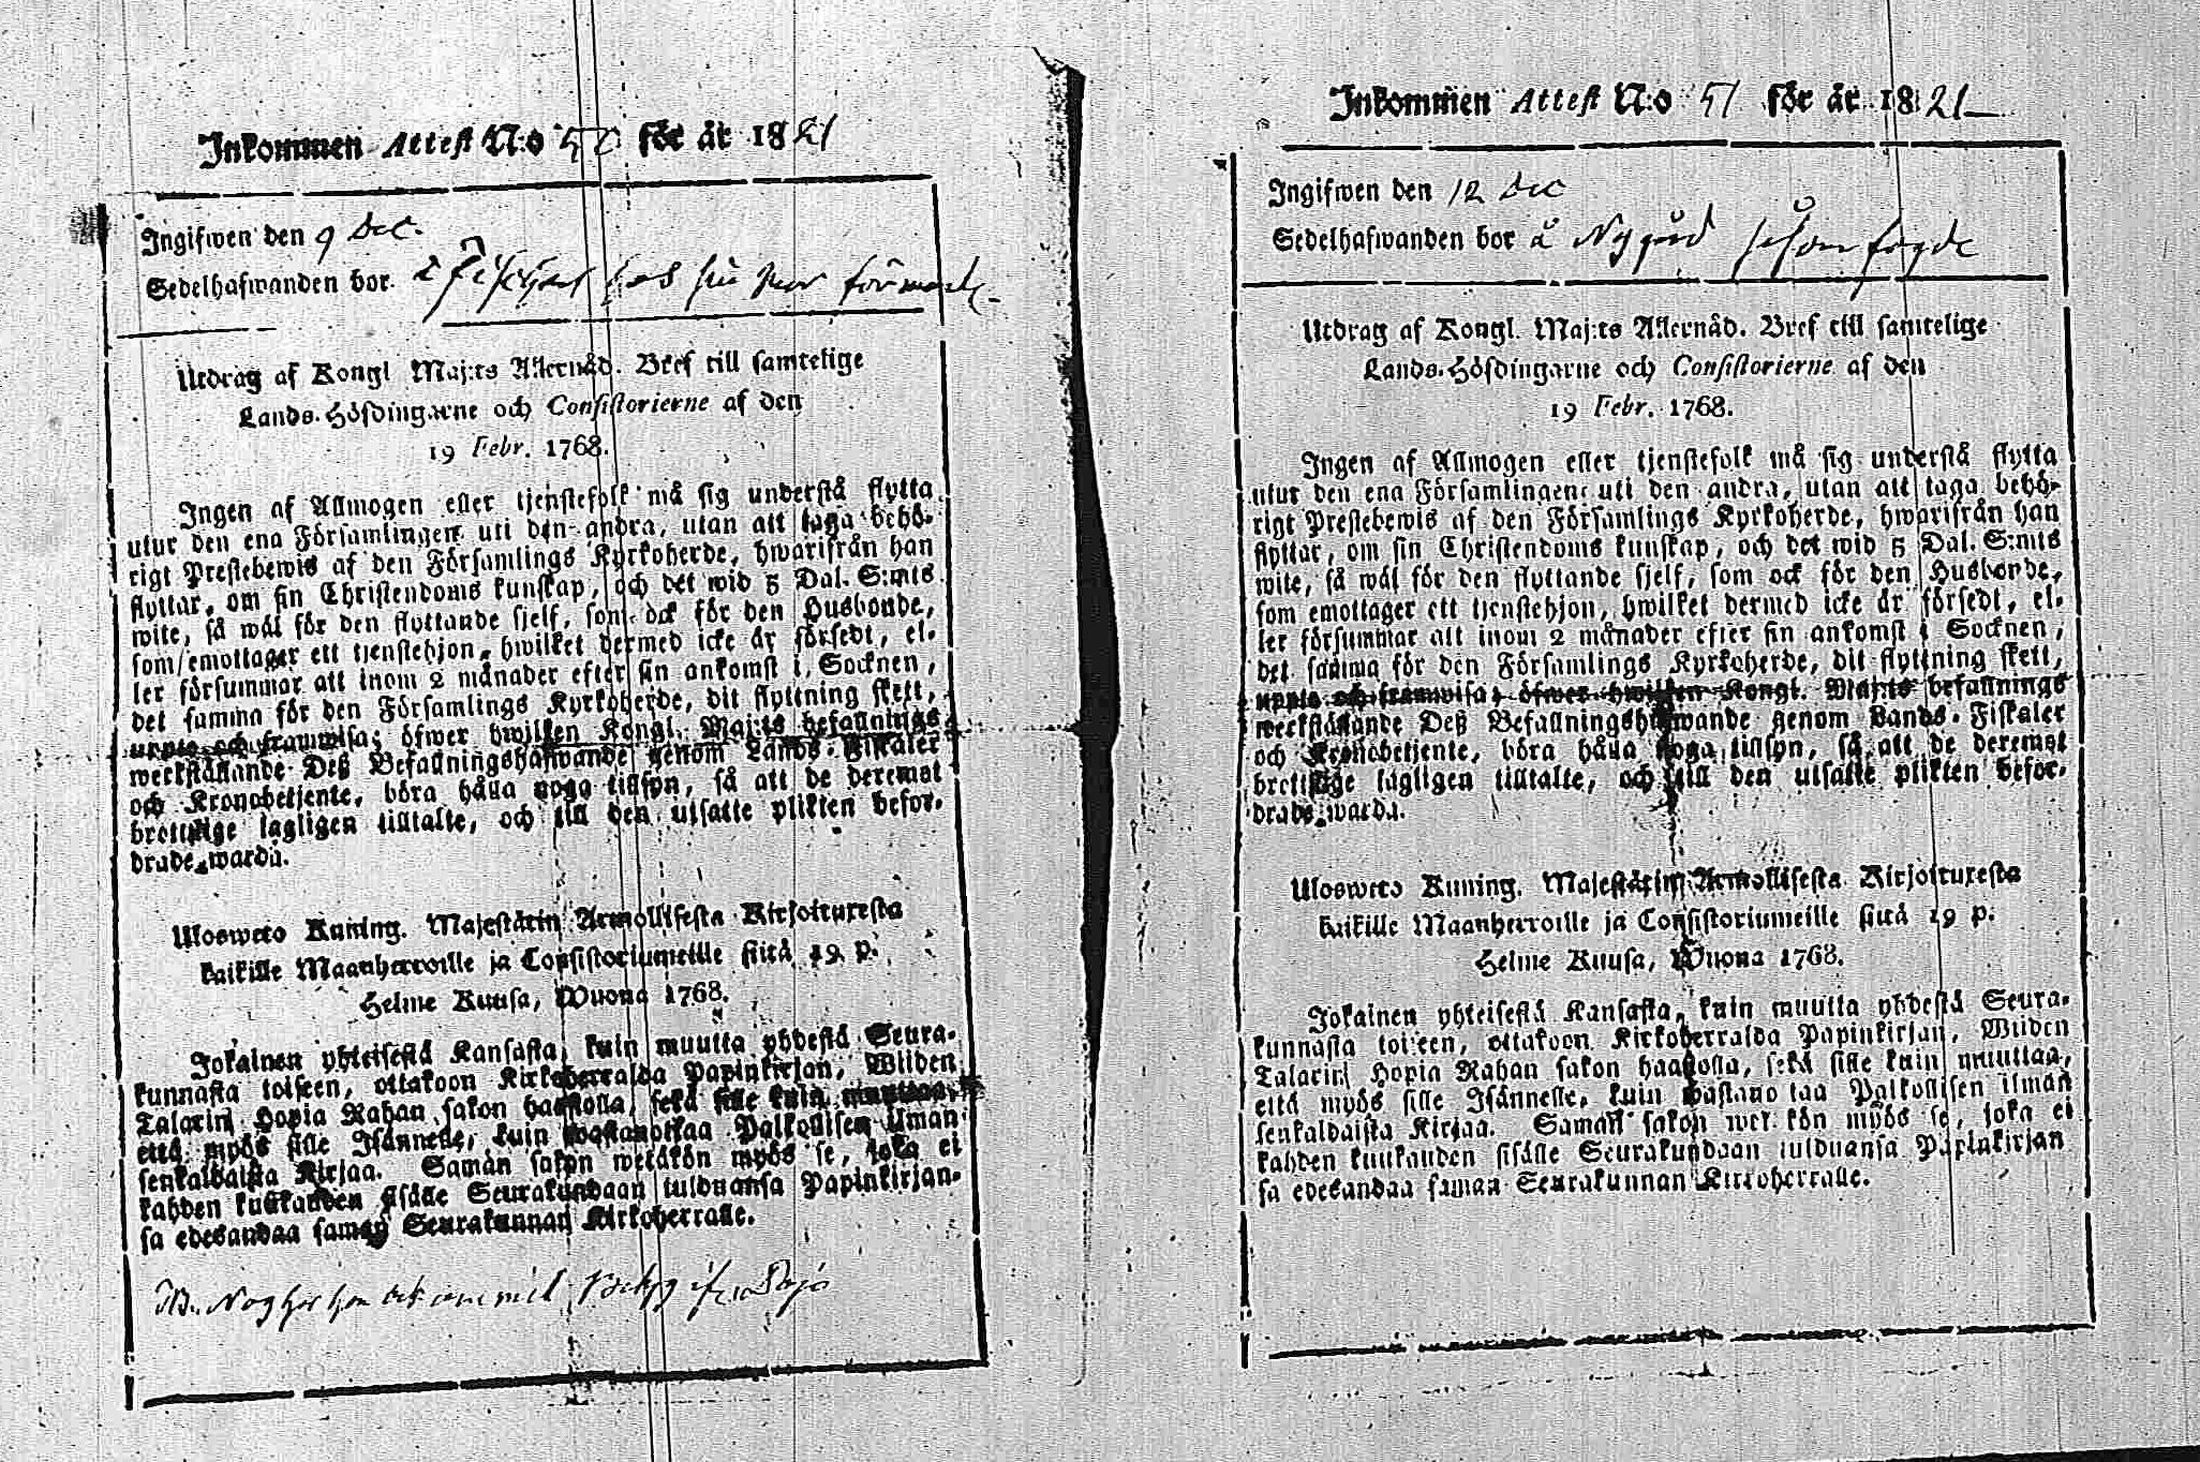 Inkommen Attest N:o 50 för år 1821
Ingifwen den 9 Dec.
Sedelhafwanden bor. å hos sin mor
Utdrag af Kongl Maj:ts Allernåd. Bref till samtelige
Lands-Höfdingarne och Consistorierne af den
19 Febr. 1768.
Ingen af Allmogen eller tjenstefolk må sig understå flytta
utur den ena Församlingen uti den andra, utan att taga behö-
rigt Prestebewis af den Församlings Kyrkoherde, hwarifrån han
flyttar, om sin Christendoms kunskap, och det wid 5 Dal. S:mts
wite, så wäl för den flyttande sjelf, som ock för den Husbonde,
som emottager ett tjenstehjon, hwilket dermed icke är försedt, el-
ler försummar att inom 2 månader efter sin ankomst i Socknen,
det samma för den Församlings Kyrkoherde, dit flyttning skett,
uppte och framwisa; öfwer hwilken Kongl. Maj:ts befallnings
werkställande Deß Befallningshafwande genom Lands-Fiskaler
och Kronobetjente, böra hålla noga tillsyn, så att de deremot
brottslige lagligen tilltalte, och till den utsatte plikten befor-
drade warda.
Ulosweto Kuning. Majestätin Armollisesta Kirjoituxesta
kaikille Maanherroille ja Consistoriumeille siitä 19 p.
Helme Kuusa, Wuona 1768.
Jokainen yhteisestä Kansasta, kuin muutta yhdestä Seura-
kunnasta toiseen, ottakoon Kirkoherralda Papinkirjan, Wiiden
Talarin Hopia Rahan sakon haastolla, sekä sille kuin muuttaa,
että myös sille Isännelle, kuin wastanottaa Palkollisen ilman
senkaldaista Kirjaa. Saman sakon wetäkön myös se, joka ei
kahden kuukauden sisälle Seurakundaan tulduansa Papinkirjan-
sa edesandaa saman Seurakunnan Kirkoherralle.
NB. Nog har hon
Inkommen Attest N:o 51 för år 1821
Ingifwen den 12 Dec
Sedelhafwanden bor å Nygård såsom fogde
Utdrag af Kongl. Maj:ts Allernåd. Bref till samtelige
Lands-Höfdingarne och Consistorierne af den
19 Febr. 1768.
Ingen af Allmogen eller tjenstefolk må sig understå flytta
utur den ena Församlingen uti den andra, utan att taga behö-
rigt Prestebewis af den Församlings Kyrkoherde, hwarifrån han
flyttar, om sin Christendoms kunskap, och det wid 5 Dal. S:mts
wite, så wäl för den flyttande sjelf, som ock för den Husbonde,
som emottager ett tjenstehjon, hwilket dermed icke är försedt, el-
ler försummar att inom 2 månader efter sin ankomst i Socknen,
det samma för den Församlings Kyrkoherde, dit flyttning skett,
uppte och framwisa; öfwer hwilken Kongl. Maj:ts befallnings
werkställande Deß Befallningshafwande genom Lands-Fiskaler
och Kronobetjente, böra hålla noga tillsyn, så att de deremot
brottslige lagligen tilltalte, och till den utsatte plikten befor-
drade warda.
Ulosweto Kuning. Majestätin Armollisesta Kirjoituxesta
kaikille Maanherroille ja Consistoriumeille siitä 19 p.
Helme Kuusa, Wuona 1768.
Jokainen yhteisestä Kansasta, kuin muutta yhdestä Seura-
kunnasta toiseen, ottakoon Kirkoherralda Papinkirjan, Wiiden
Talarin Hopia Rahan sakon haastolla, sekä sille kuin muuttaa,
että myös sille Isännelle, kuin wastanottaa Palkollisen ilman
senkaldaista Kirjaa. Saman sakon wetäkön myös se, joka ei
kahden kuukauden sisälle Seurakundaan tulduansa Papinkirjan
sa edesandaa saman Seurakunnan Kirkoherralle.